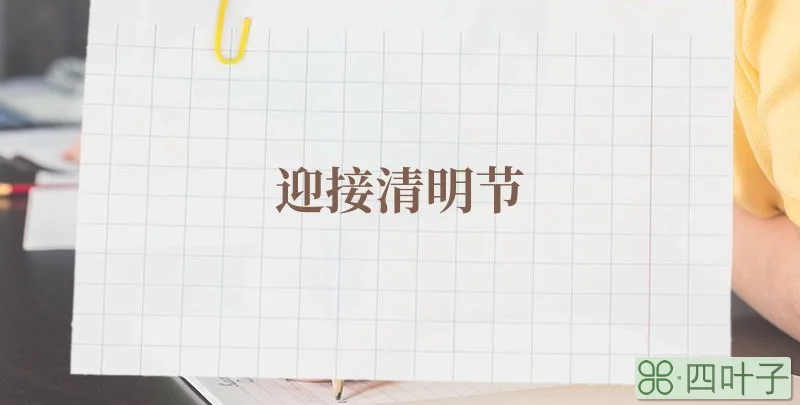 迎接清明节
⌘·四叶子